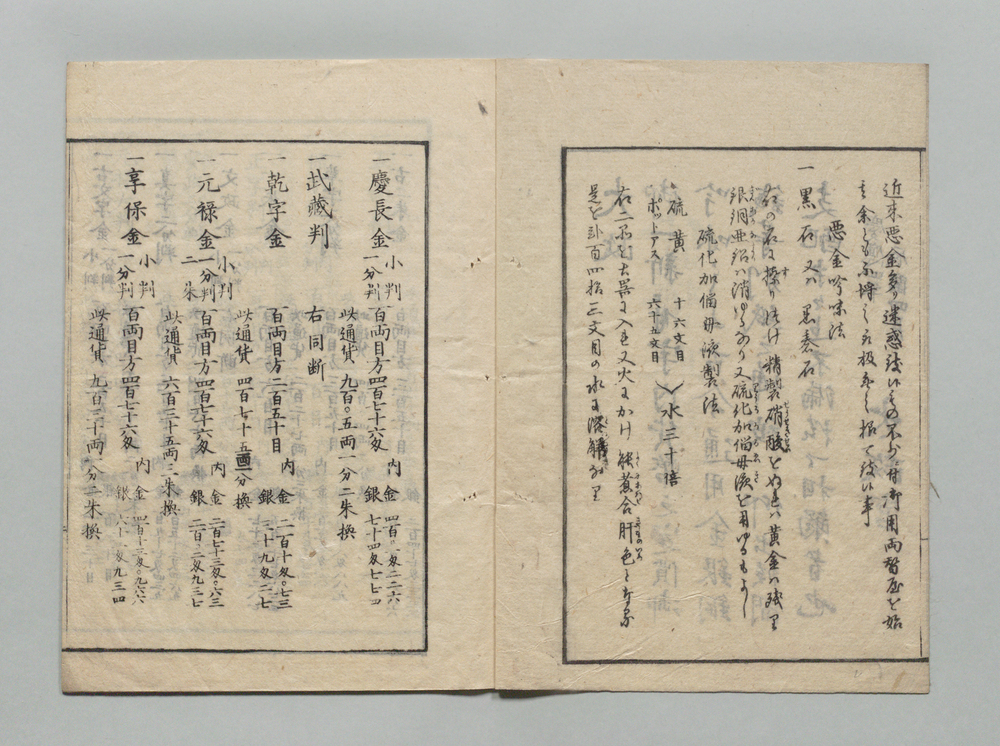 近来悪金多く迷惑致候もの不少付御用両替屋を始
其余とも不博之
悪金吟味法
一黒石又ハ黒碁石
右の石に擦り付け精製硝酸をぬれハ黄金ハ残り
銀銅亜鉛ハ消ゆるなり又硫化加僧母液を用ゆるもよし
硫化加僧母液製法
硫黄 十六文目
ポットアス 六十五文目
水三十倍
右二品を土器に入色又火にかけ
是を弐百四拾三文目の水に溶解すなり
一慶長金 小判 一分判 百両目方四百七十六匁 内 金 四百〇一匁二二六 銀 七十四匁七七四
此通貨 九百〇五両一分二朱換
一武蔵判 右同断
一乾字金 百両目方二百五十目 内 金 二百十匁〇七三 銀 三十九匁九二七
此通貨 四百七十五両一分換
一元禄金 小判 一分判 二朱 百両目方四百七十六匁 内 金 二百七十三匁〇六三 銀 二百〇二匁九三七
此通貨 六百三十五両三朱換
一享保金 小判 一分判 百両目方四百七十六匁 内 金 四百十三匁〇九六六 銀 六十二匁九三四
此通貨 九百三十両一分二朱換